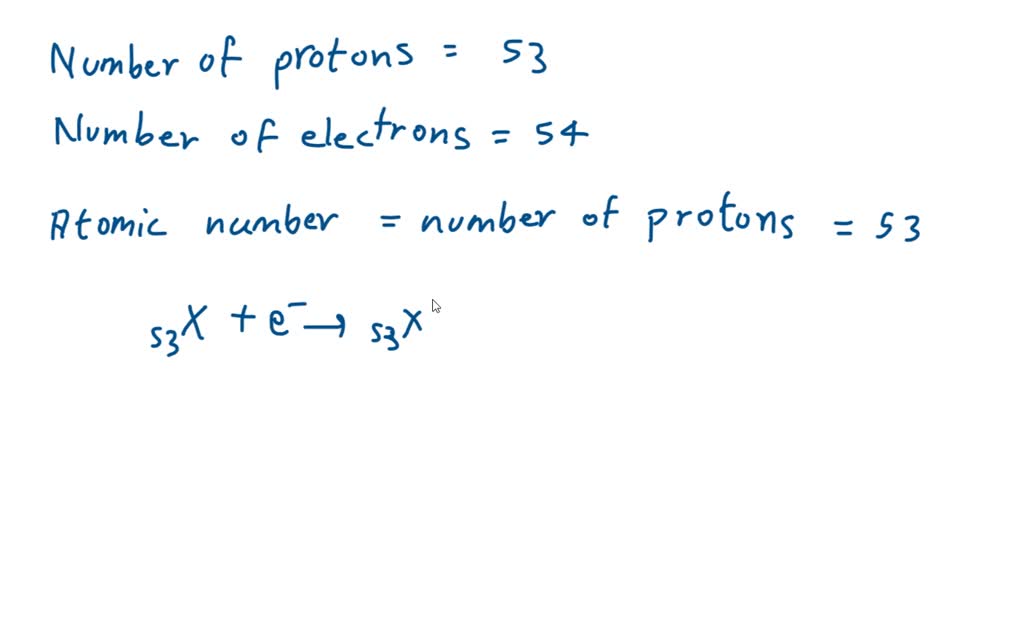 Number of protons = 53
Number of electrons = 54
Atomic number = number of protons = 53
₅₃X + e⁻ → ₅₃X